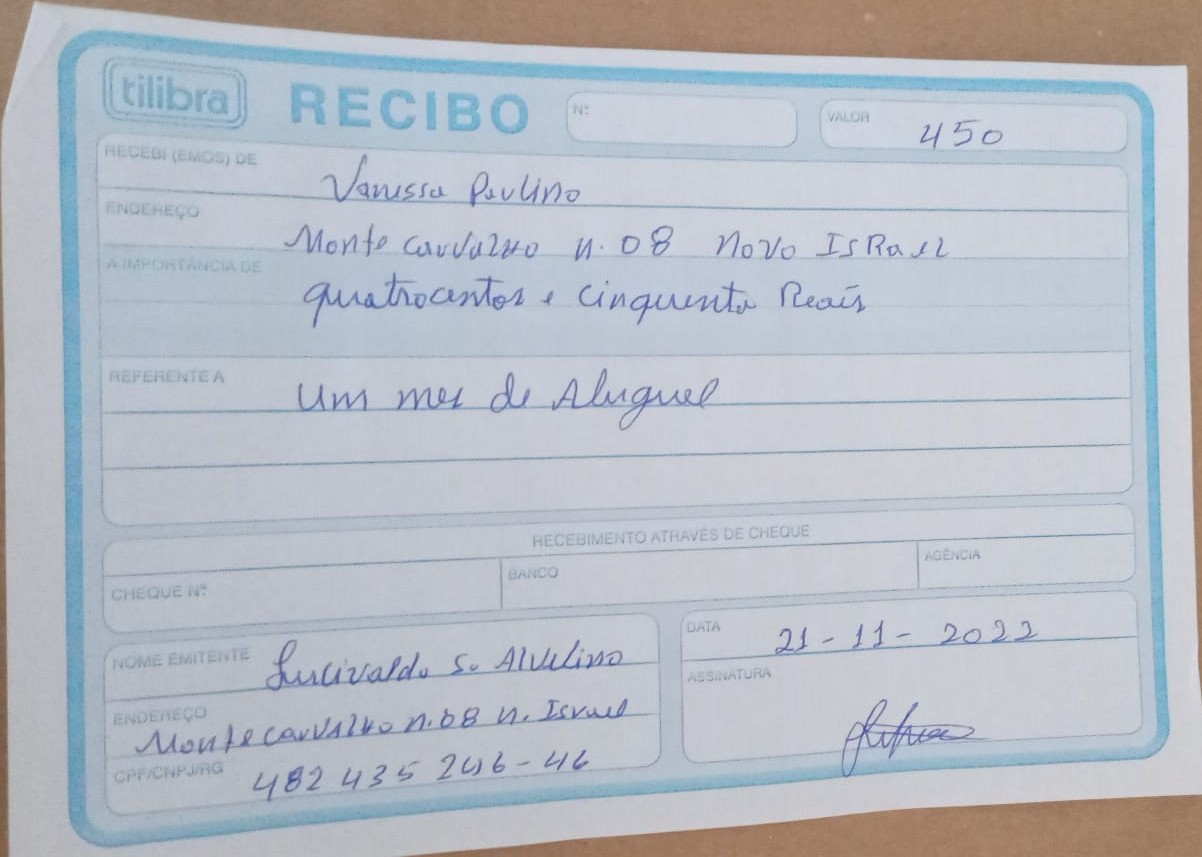 tilibra RECIBO Nº VALOR 450
RECEBI (EMOS) DE Vanessa Paulino
ENDEREÇO Monte Carvalho n. 08 Novo Israel
A IMPORTÂNCIA DE quatrocentos e cinquenta Reais
REFERENTE A Um mes de Aluguel
RECEBIMENTO ATRAVÉS DE CHEQUE
CHEQUE Nº BANCO AGÊNCIA
NOME EMITENTE Lucivaldo S. Alvelino
ENDEREÇO Monte Carvalho n. 08 n. Israel
CPF/CNPJ/RG 482 435 246-46
DATA 21-11-2022
ASSINATURA